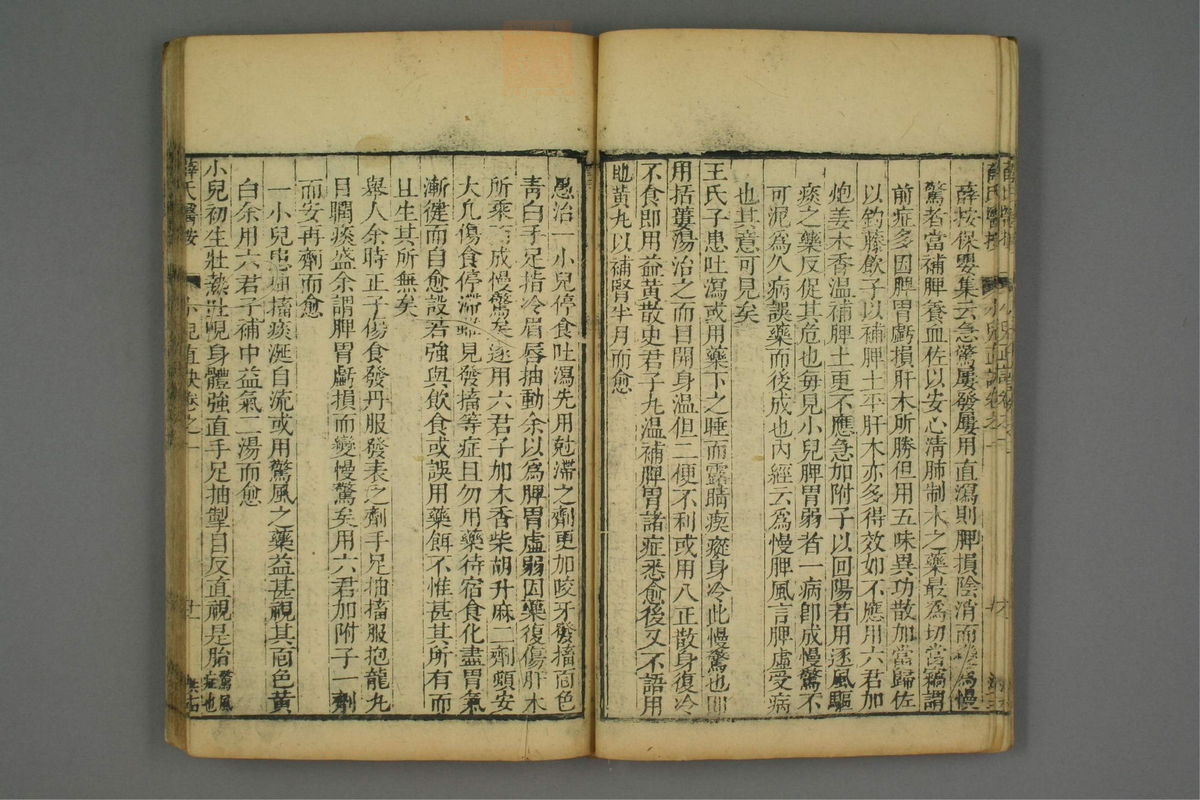 薛按保嬰集云急驚屢發屢用直瀉則脾損陰消而變為慢
驚者當補脾養血佐以安心淸肺制木之藥最為切當竊謂
前症多因脾胃虧損肝木所勝但用五味異功散加當歸佐
以鈎藤飲子以補脾土平肝木亦多得效如不應用六君加
炮姜木香溫補脾土更不應急加附子以回陽若用逐風驅
痰之藥反促其危也每見小兒脾胃弱者一病卽成慢驚不
可泥爲久病誤藥而後成也內經云爲慢脾風言脾虛受病
也其意可見矣
王氏子患吐瀉或用藥下之睡而露睛瘈瘲身冷此慢驚也即
用括蔞湯治之而目開身溫但二便不利或用八正散身復冷
不食即用益黃散史君子丸溫補脾胃諸症悉愈後又不語用
地黃丸以補腎半月而愈
愚治一小兒停食吐瀉先用尅滯之劑更加咬牙發搐面色
靑白手足指冷眉唇抽動余以爲脾胃虛弱因藥復傷肝木
所乘 成慢驚矣遂用六君子加木香柴胡升麻二劑頓安
大凡傷食停滯 見發搐等症且勿用藥待宿食化盡胃氣
漸復而自愈設若強與飲食或誤用藥餌不惟甚其所有而
且生其所無矣
舉人余時正子傷食發丹服發表之劑手足抽搐服抱龍丸
目瞤痰盛余謂脾胃虧損而變慢驚矣用六君加附子一劑
而安再劑而愈
一小兒患 搐痰涎自流或用驚風之藥益甚視其面色黃
白余用六君子補中益氣二湯而愈
小兒初生壯熱 身體強直手足抽掣目反直視是胎驚風症也
薛氏醫按 小兒直訣卷之一